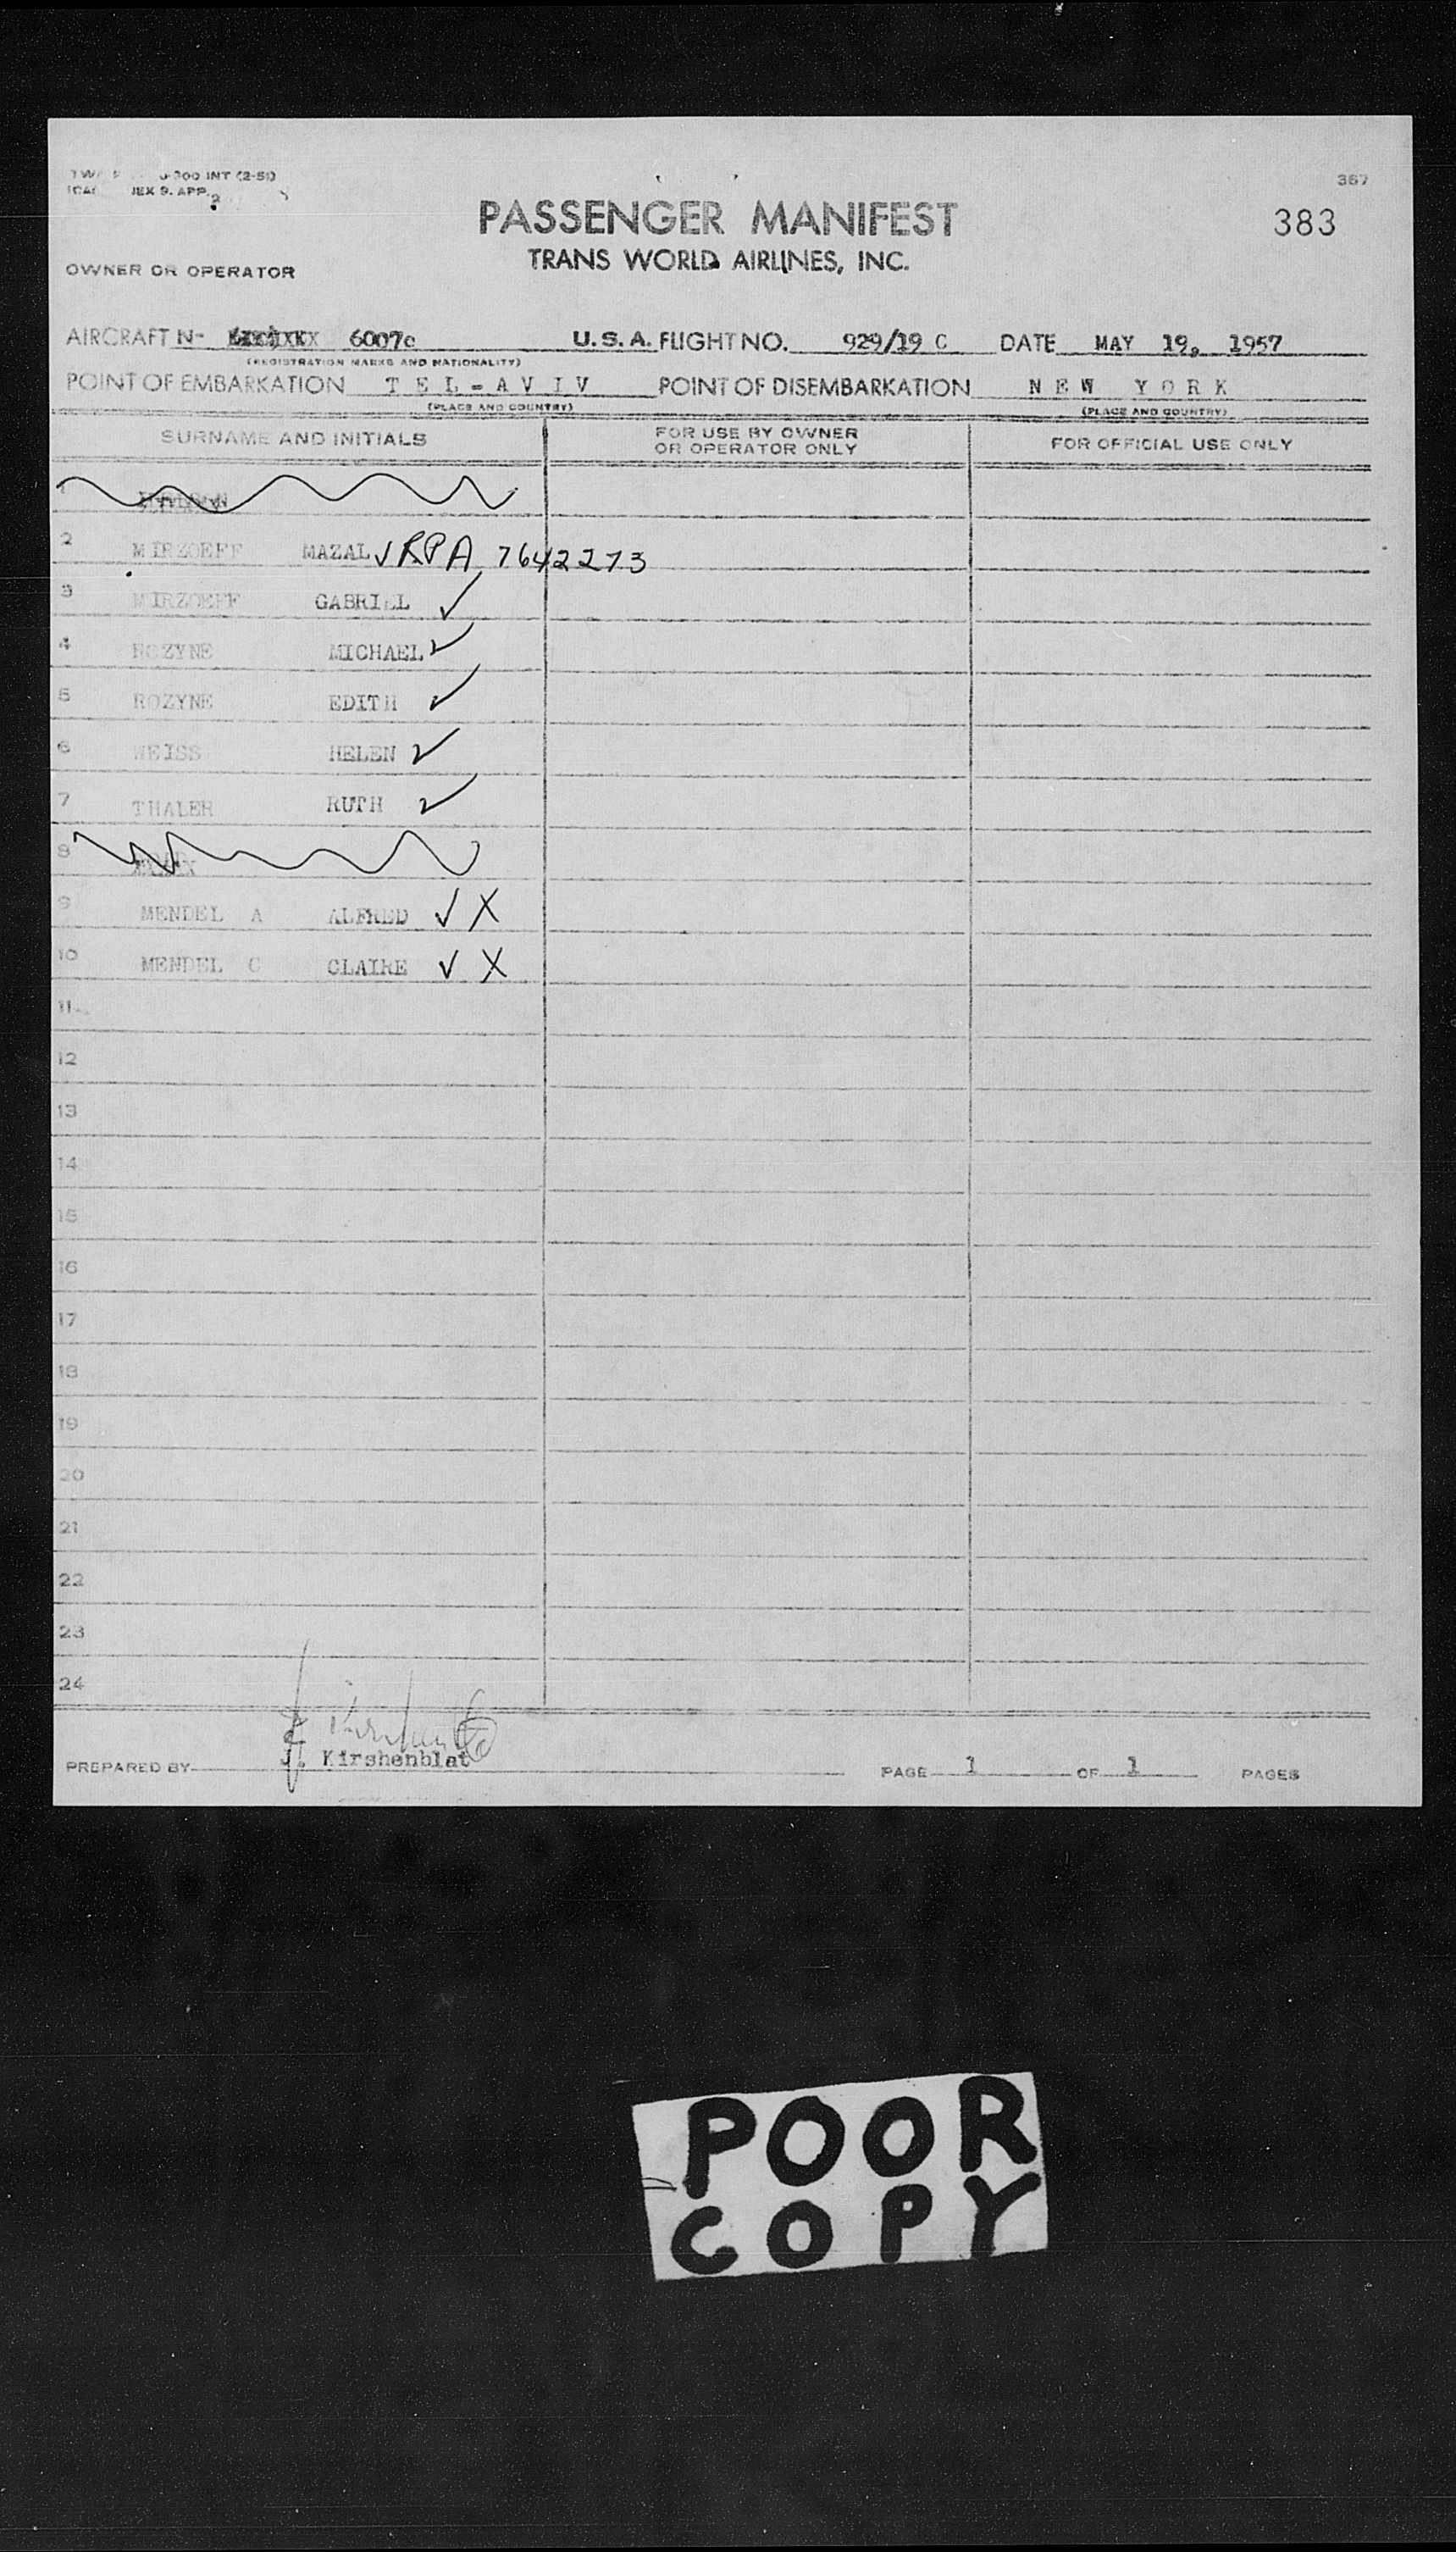 367
PASSENGER MANIFEST
383
TRANS WORLD AIRLINES, INC.
OWNER OR OPERATOR
AIRCRAFT N- 6007c U.S.A. FLIGHT NO. 929/19 C DATE MAY 19, 1957
(REGISTRATION MARKS AND NATIONALITY)
POINT OF EMBARKATION TEL-AVIV POINT OF DISEMBARKATION NEW YORK
(PLACE AND COUNTRY) (PLACE AND COUNTRY)
SURNAME AND INITIALS
FOR USE BY OWNER
OR OPERATOR ONLY
FOR OFFICIAL USE ONLY
1
2 MIRZOEFF MAZAL ✓ RPA 7642273
3 MIRZOEFF GABRIEL ✓
4 ROZYNE MICHAEL ✓
5 ROZYNE EDITH ✓
6 WEISS HELEN ✓
7 THALER RUTH ✓
8
9 MENDEL A ALFRED ✓ X
10 MENDEL C CLAIRE ✓ X
11
12
13
14
15
16
17
18
19
20
21
22
23
24
PREPARED BY J. Kirshenblat PAGE 1 OF 1 PAGES
POOR
COPY